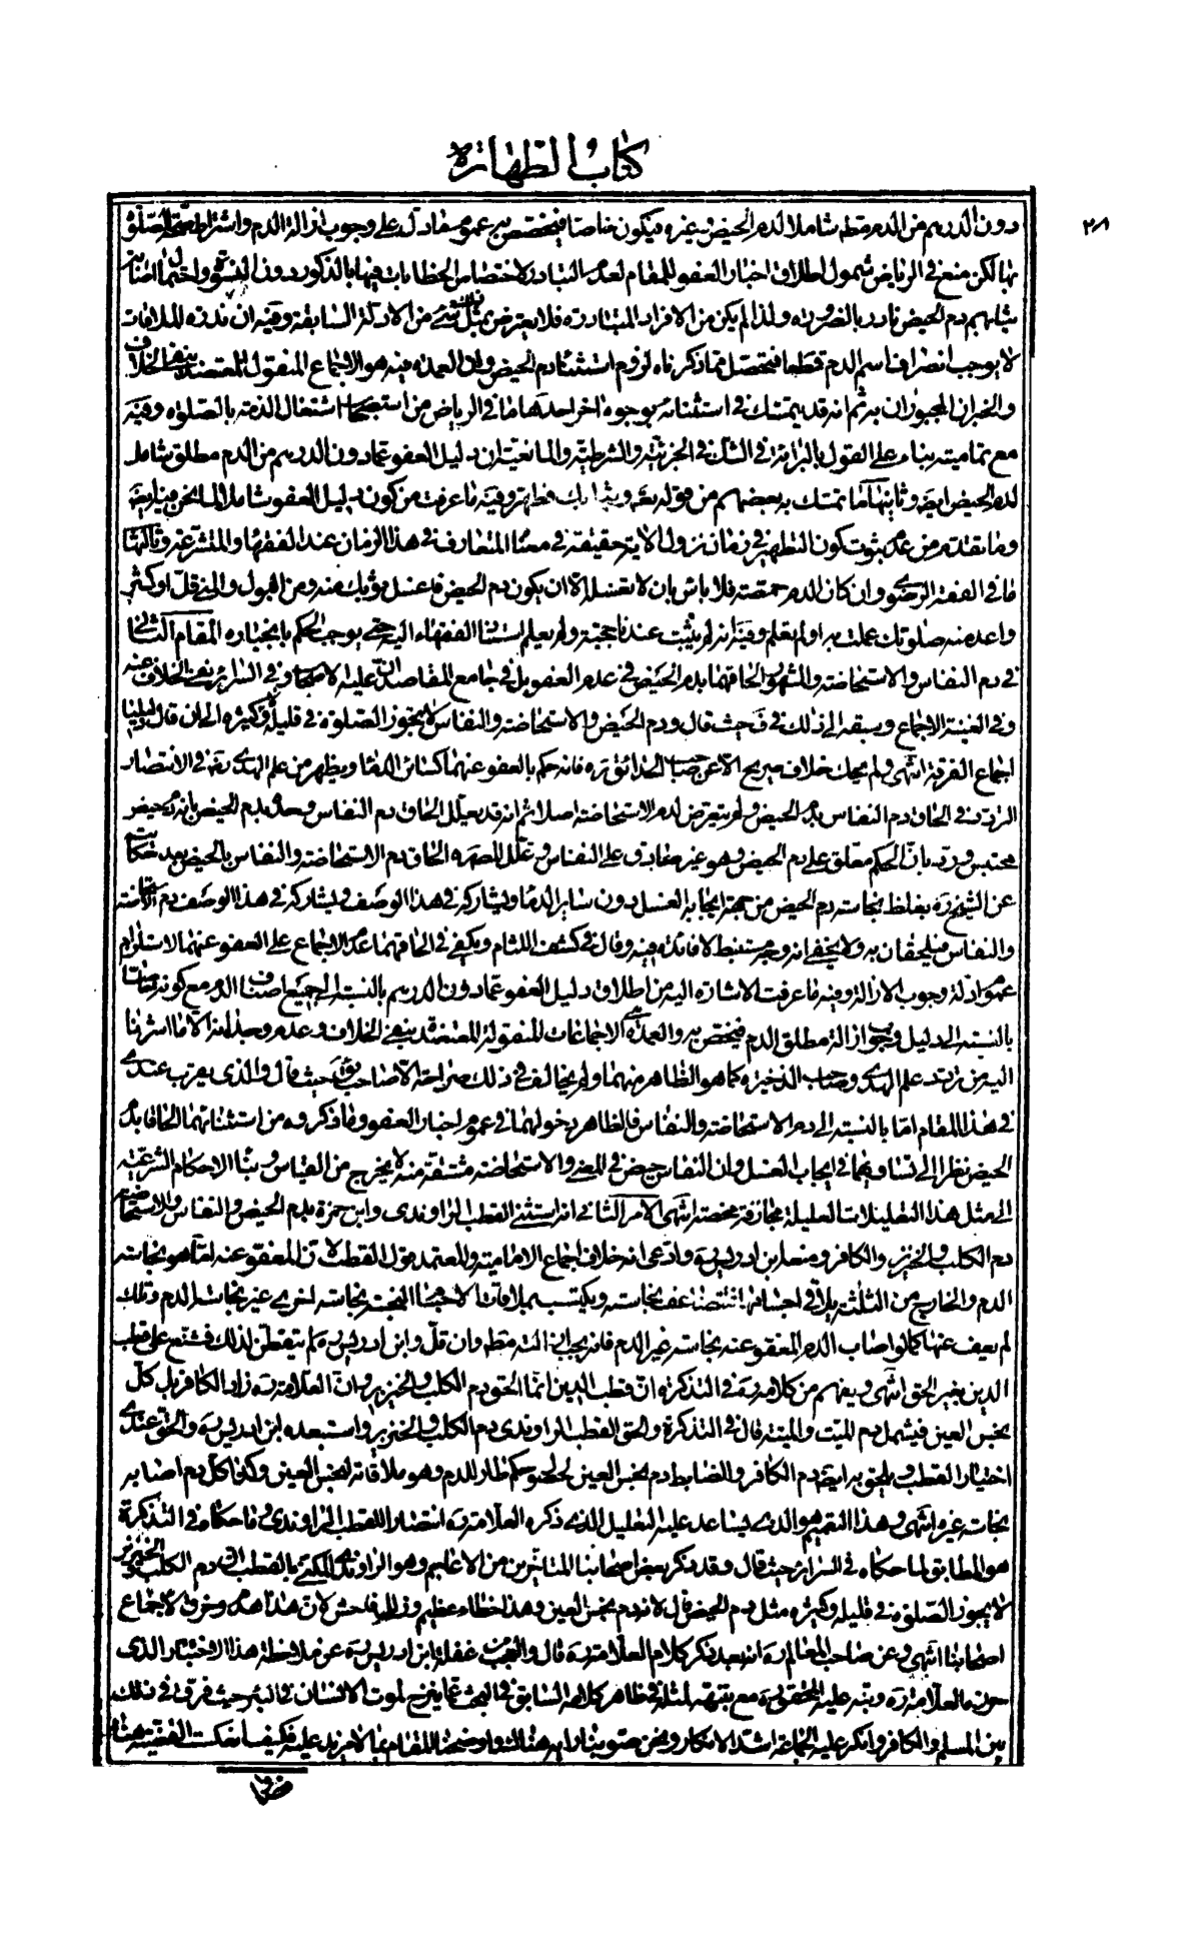 كتاب الطهارة
٢٠٨
دون الدرهم من الدم مطه شاملا لدم الحيض وغيره فيكون خاصا فيختص به عموم ما دل على وجوب ازالة الدم واشتراط صحة الصلوة
بها لكن منع في الرياض شمول اطلاق اخبار العفو للمقام لعدم التبادر لاختصاص الخطابات فيها بالذكور دون النسوة واحتمال اصابة
ثيابهم دم الحيض نادر بالضرورة ولذا لم يكن من الافراد المتبادرة فلا يعترض بمثل شيء من الادلة السابقة وفيه ان ندرة الملاقات
لا يوجب انصراف اسم الدم قطعا فتحصل مما ذكرناه لزوم استثناء دم الحيض وان العمدة فيه هو الاجماع المنقول المعتضد بنفي الخلاف
والخبران المجبوران به ثم انه قد يتمسك في استثنائه بوجوه اخر احدها ما في الرياض من استصحاب اشتغال الذمة بالصلوة وفيه
مع تماميته بناء على القول بالبرائة في الشك في الجزئية والشرطية والمانعية ان دليل العفو عما دون الدرهم من الدم مطلق شامل
لدم الحيض ايضا وثانيها ما تمسك به بعضهم من قوله تعالى وثيابك فطهر وفيه ما عرفت من كون دليل العفو شاملا لما نحن فيه ايضا
وما تقدم من عدم ثبوت كون التطهير في زمان نزول الاية حقيقة في معناه المتعارف في هذا الزمان عند الفقهاء والمتشرعة وثالثها
ما في الفقه الرضوي وان كان الدم حمصة فلا باس بان لا تغسله الا ان يكون دم الحيض فاغسل ثوبك منه ومن البول والمني قل او كثر
واعد منه صلوتك علمت به او لم تعلم وفيه انه لم يثبت عندنا حجيته ولم يعلم استناد الفقهاء اليه حتى يوجب الحكم بانجباره المقام الثاني
في دم النفاس والاستحاضة والمشهور الحاقهما بدم الحيض في عدم العفو بل في جامع المقاصد ان عليه الاصحاب وفي السرائر نفي الخلاف عنه
وفي الغنية الاجماع وسبقه الى ذلك في ف حيث قال ودم الحيض والاستحاضة والنفاس لا يجوز الصلوة في قليله وكثيره الى ان قال دليلنا
اجماع الفرقة انتهى ولم يحك خلاف صريح الا عن صاحب الحدائق ره فانه حكم بالعفو عنهما كسائر الدماء ويظهر من علم الهدى ره في الانتصار
التردد في الحاق دم النفاس بدم الحيض ولم يتعرض لدم الاستحاضة اصلا ثم انه قد يعلل الحاق دم النفاس وحده بدم الحيض بانه حيض
محتبس ورد بان الحكم معلق على دم الحيض وهو غير صادق على النفاس وعلل المص ره الحاق دم الاستحاضة والنفاس بالحيض بعد حكايته
عن الشيخ ره بغلظ نجاسة دم الحيض من جهة ايجابه الغسل دون سائر الدماء ويشاركه في هذا الوصف دم الاستحاضة
والنفاس فيلحقان به ولا يخفى انه وجه مستنبط لا فائدة فيه وقال في كشف اللثام ويكفي في الحاقهما عدم الاجماع على العفو عنهما لاستلزام
عموم ادلة وجوب الازالة وفيه ما عرفت الاشارة اليه من اطلاق دليل العفو عما دون الدرهم بالنسبة الى جميع اصناف الدم مع كونه خاصا
بالنسبة الى دليل وجوب ازالة مطلق الدم فيختص به والعمدة هي الاجماعات المنقولة المعتضدة بنفي الخلاف وعدم وجدانه الا ما اشرنا
اليه من تردد علم الهدى وصاحب الذخيرة كما هو الظاهر منهما ولم يخالف في ذلك صراحة الا صاحب الحدائق حيث قال والذي يقرب عندي
في هذا المقام اما بالنسبة الى دم الاستحاضة والنفاس فالظاهر دخولهما في عموم اخبار العفو وما ذكروه من استثنائهما الحاقا بدم
الحيض نظرا الى تساويهما في ايجاب الغسل وان النفاس حيض في المعنى والاستحاضة مشتقة منه لا يخرج من القياس وبناء الاحكام الشرعية
على مثل هذه التعليلات العليلة مجازفة محضة انتهى الامر الثاني انه استثنى القطب الراوندي وابن حمزة بدم الحيض والنفاس والاستحاضة
دم الكلب والخنزير والكافر ومنعه ابن ادريس ره وادعى انه خلاف اجماع الامامية والمعتمد قول القطب لان المعفو عنه انما هو نجاسة
الدم والخارج من الثلثة يلاقي اجسامها فتتضاعف نجاسته ويكتسب بملاقات الاجسام النجسة نجاسة اخرى غير نجاسة الدم وتلك
لم يعف عنها كما لو اصاب الدم المعفو عنه نجاسة غير الدم فانه يجب ازالته مطه وان قل وابن ادريس ره لم يتفطن لذلك فشنع على قطب
الدين بغير الحق انتهى ويفهم من كلامه ره في التذكرة ان قطب الدين انما الحق دم الكلب والخنزير وان العلامة ره زاد الكافر بل كل
نجس العين فيشمل دم الميت والميتة قال في التذكرة والحق القطب الراوندي دم الكلب والخنزير واستبعده ابن ادريس ره والحق عندي
اختيار القطب ويلحق به ايضا دم الكافر والضابط دم نجس العين لحصول حكم طار للدم وهو ملاقاته لنجس العين وكذا كل دم اصابه
نجاسة غيره انتهى وهذا التعميم هو الذي يساعد عليه التعليل الذي ذكره العلامة ره انتصارا للقطب الراوندي وما حكاه في التذكرة
هو المطابق لما حكاه في السرائر حيث قال وقد ذكر بعض اصحابنا المتاخرين من الاعاجم وهو الراوندي المكنى بالقطب ان دم الكلب والخنزير
لا يجوز الصلوة في قليله وكثيره مثل دم الحيض قال لانه دم نجس العين وهذا خطاء عظيم وزلل فاحش لان هذا هدم وخرق لاجماع
اصحابنا انتهى وعن صاحب المعالم ره انه بعد ذكر كلام العلامة ره قال والعجب غفلة ابن ادريس ره عن ملاحظة هذا الاعتبار الذي
حرره العلامة ره ونبه عليه المحقق ره مع تنبهه لمثله في ظاهر كلامه السابق في البحث عما ينزح لموت الانسان في البئر حيث فرق في ذلك
بين المسلم والكافر وانكر عليه الجماعة اشد الانكار ونحن صوبنا رايه هناك واوضحنا المقام بما لا مزيد عليه فكيف انعكست القضية هنا